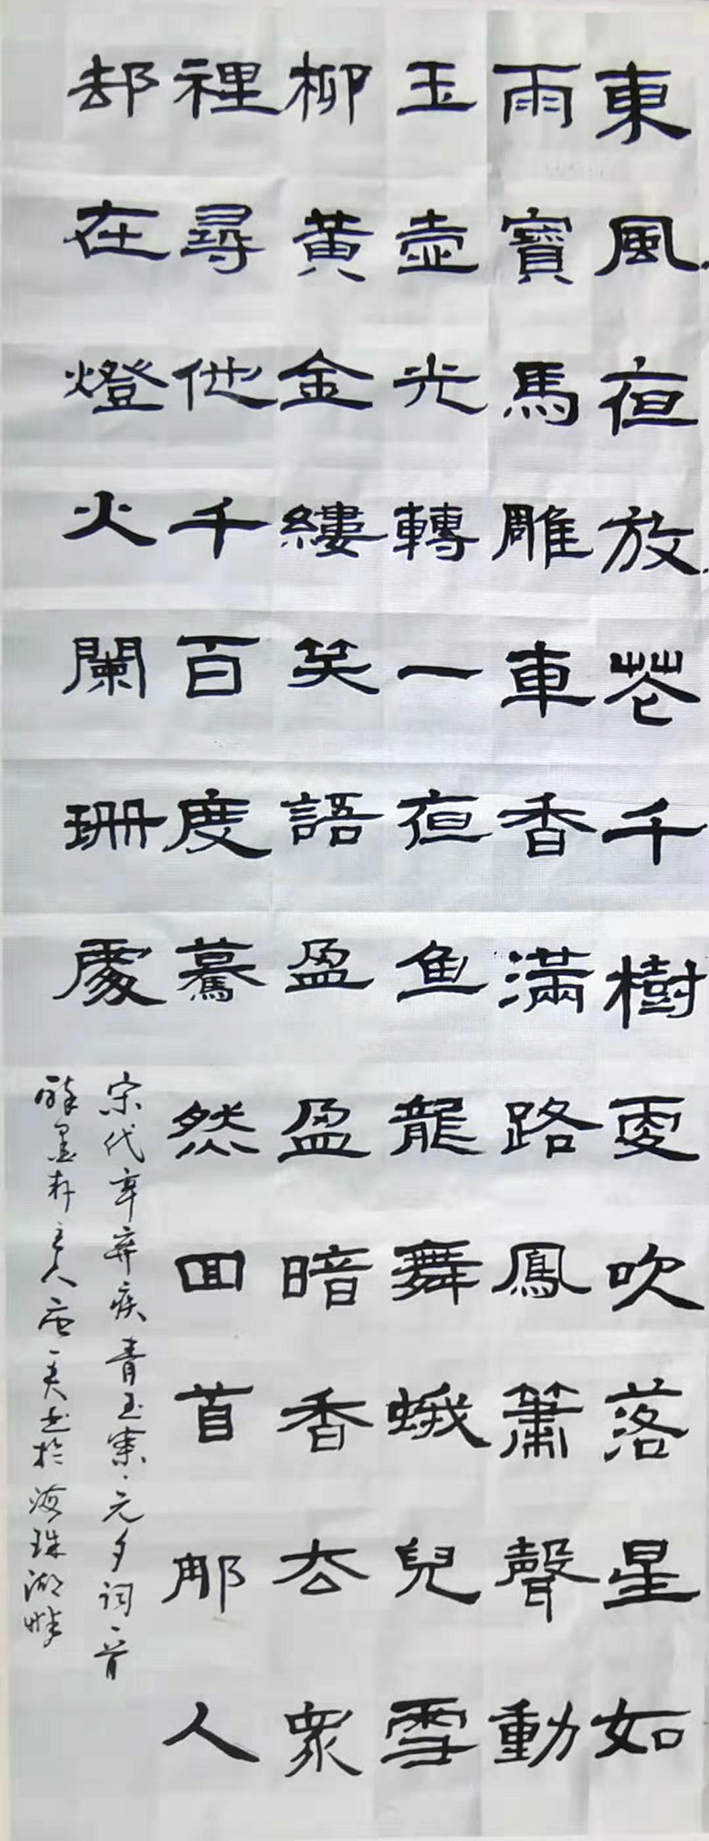 東風夜放花千樹更吹落星如
雨寶馬雕車香滿路鳳簫聲動
玉壺光轉一夜魚龍舞蛾兒雪
柳黃金縷笑語盈盈暗香去衆
裡尋他千百度驀然回首那人
却在燈火闌珊處
宋代辛弃疾青玉案·元夕词一首
醉墨轩主人 书於海珠湖畔